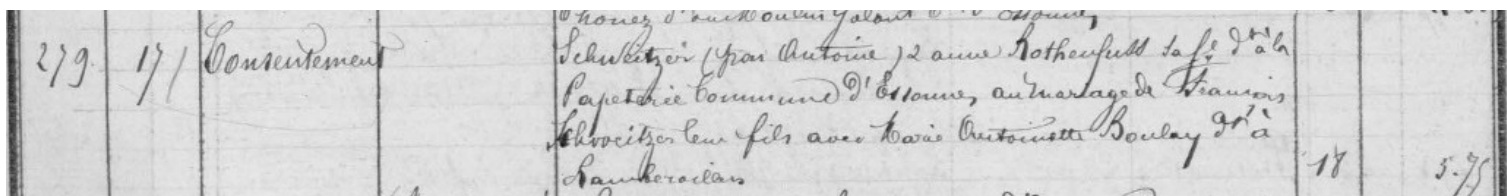 Moulin Galant
279. 17/ Consentement Schweitzer (par Antoine) 2 anne Rothenfuss sa fe dt à la
Papeterie Commune d'Essonnes, au mariage de François
Schweitzer leur fils avec Marie Antoinette Boulay dt à
18 5.75